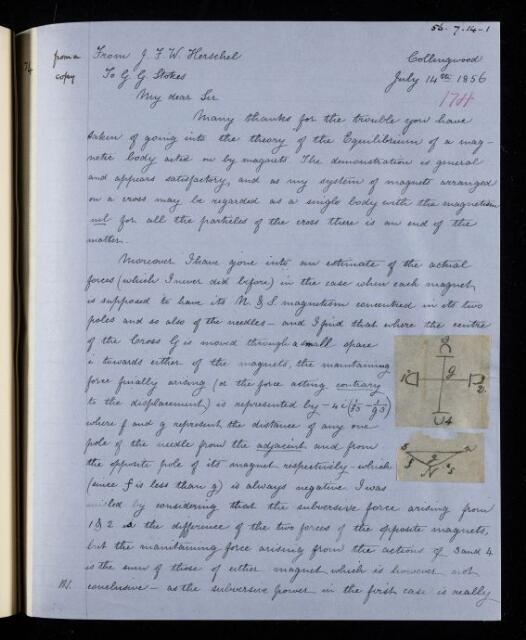 56-7-14-1
74
from a
copy
From J. F. W. Herschel
Collingwood
To G. G. Stokes
July 14th 1856
174
My dear Sir
Many thanks for the trouble you have
taken of going into the theory of the Equilibrium of a mag-
netic body acted on by magnets. The demonstration is general
and appears satisfactory, and as my system of magnets arranged
on a cross may be regarded as a single body with the magnetism
nil for all the particles of the cross there is an end of the
matter.
Moreover I have gone into an estimate of the actual
forces (which I never did before) in the case when each magnet
is supposed to have its N. & S. magnetism concentred in its two
poles and so also of the needles — and I find that where the centre
of the Cross G is moved through a small space
i towards either of the magnets, the maintaining
force finally arising (or the force acting contrary
to the displacement) is represented by — 4i (1/f3 - 1/g3)
where f and g represent the distance of any one
pole of the needle from the adjacent and from
the opposite pole of its magnet respectively — which
(since f is less than g) is always negative. I was
misled by considering that the subversive force arising from
1 & 2 is the difference of the two forces of the opposite magnets,
but the maintaining force arising from the actions of 3 and 4
is the sum of those of either magnet which is however not
conclusive — as the subversive power in the first case is really
3
1
G
2
4
S
n
f
g
N
S